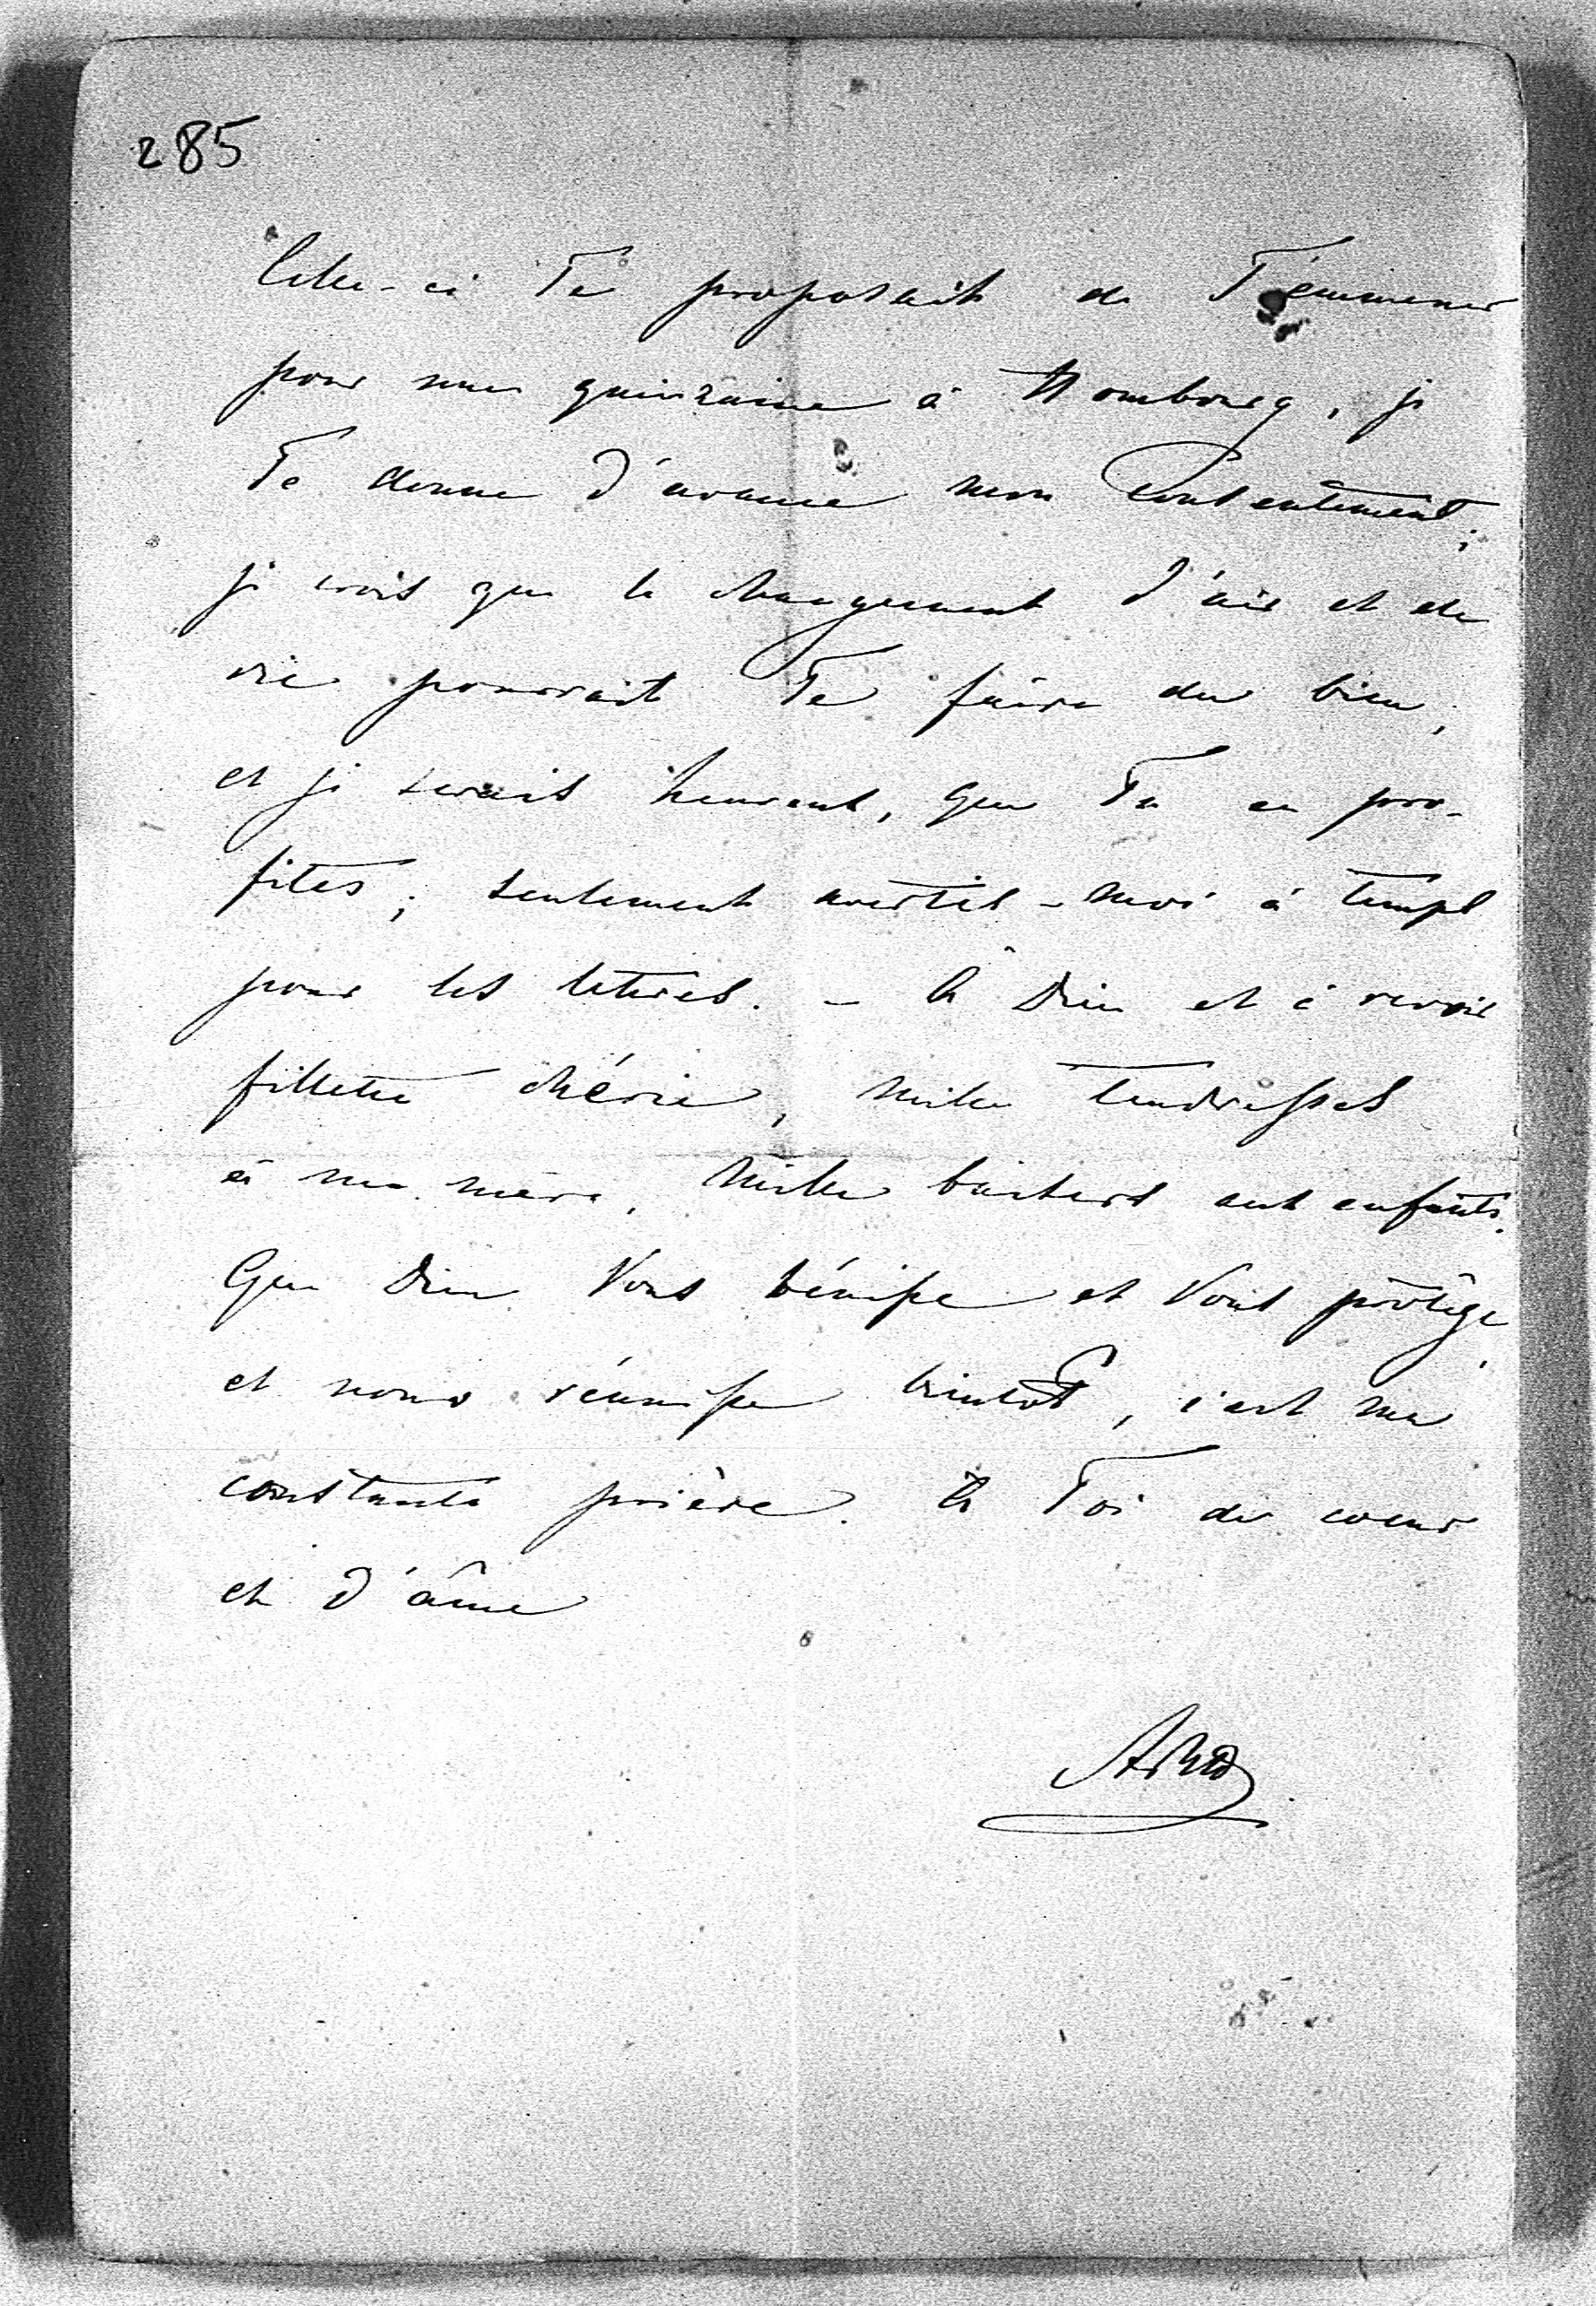 285
Celle-ci Te proposait de T'emmener
pour une quinzaine à Hombourg, je
Te donne d'avance mon consentement;
je crois que le changement d'air et de
vie pourrait Te faire du bien,
et je serais heureux, que Tu en pro-
fites; seulement avertis-moi à temps
pour les lettres. - A Dieu et à revoir
fillette chérie, mille tendresses
à ma mère, mille baisers aux enfants.
Que Dieu Vous bénisse et Vous protège
et nous réunisse bientôt, c'est ma
constante prière. A Toi de coeur
et d'âme